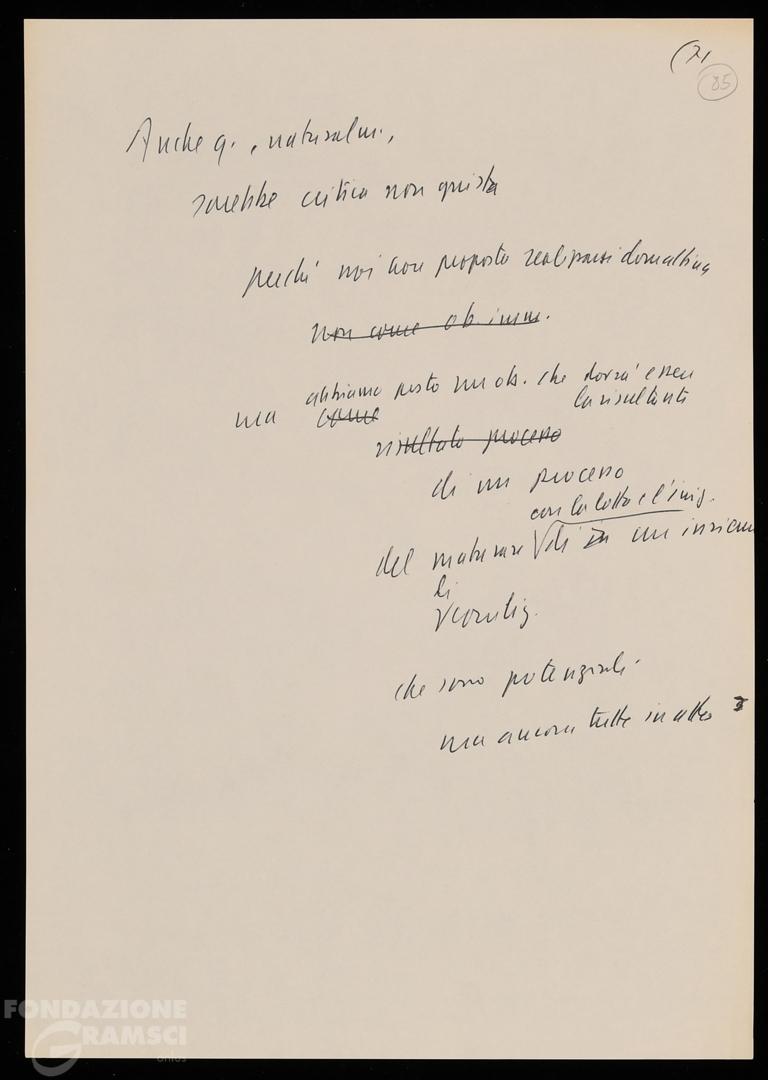 (7,
85
Anche q., naturalm.,
sarebbe critica non giusta
perché noi non proposto realizzarsi domattina
non come ob. imm.
abbiamo posto un ob. che dovrà essere
ma come la risultante
risultato processo
di un processo
con la lotta e l'iniz.
del maturare di in un insieme
di
condiz.
che sono potenziali
ma ancora tutte in atto
FONDAZIONE
GRAMSCI
onlus